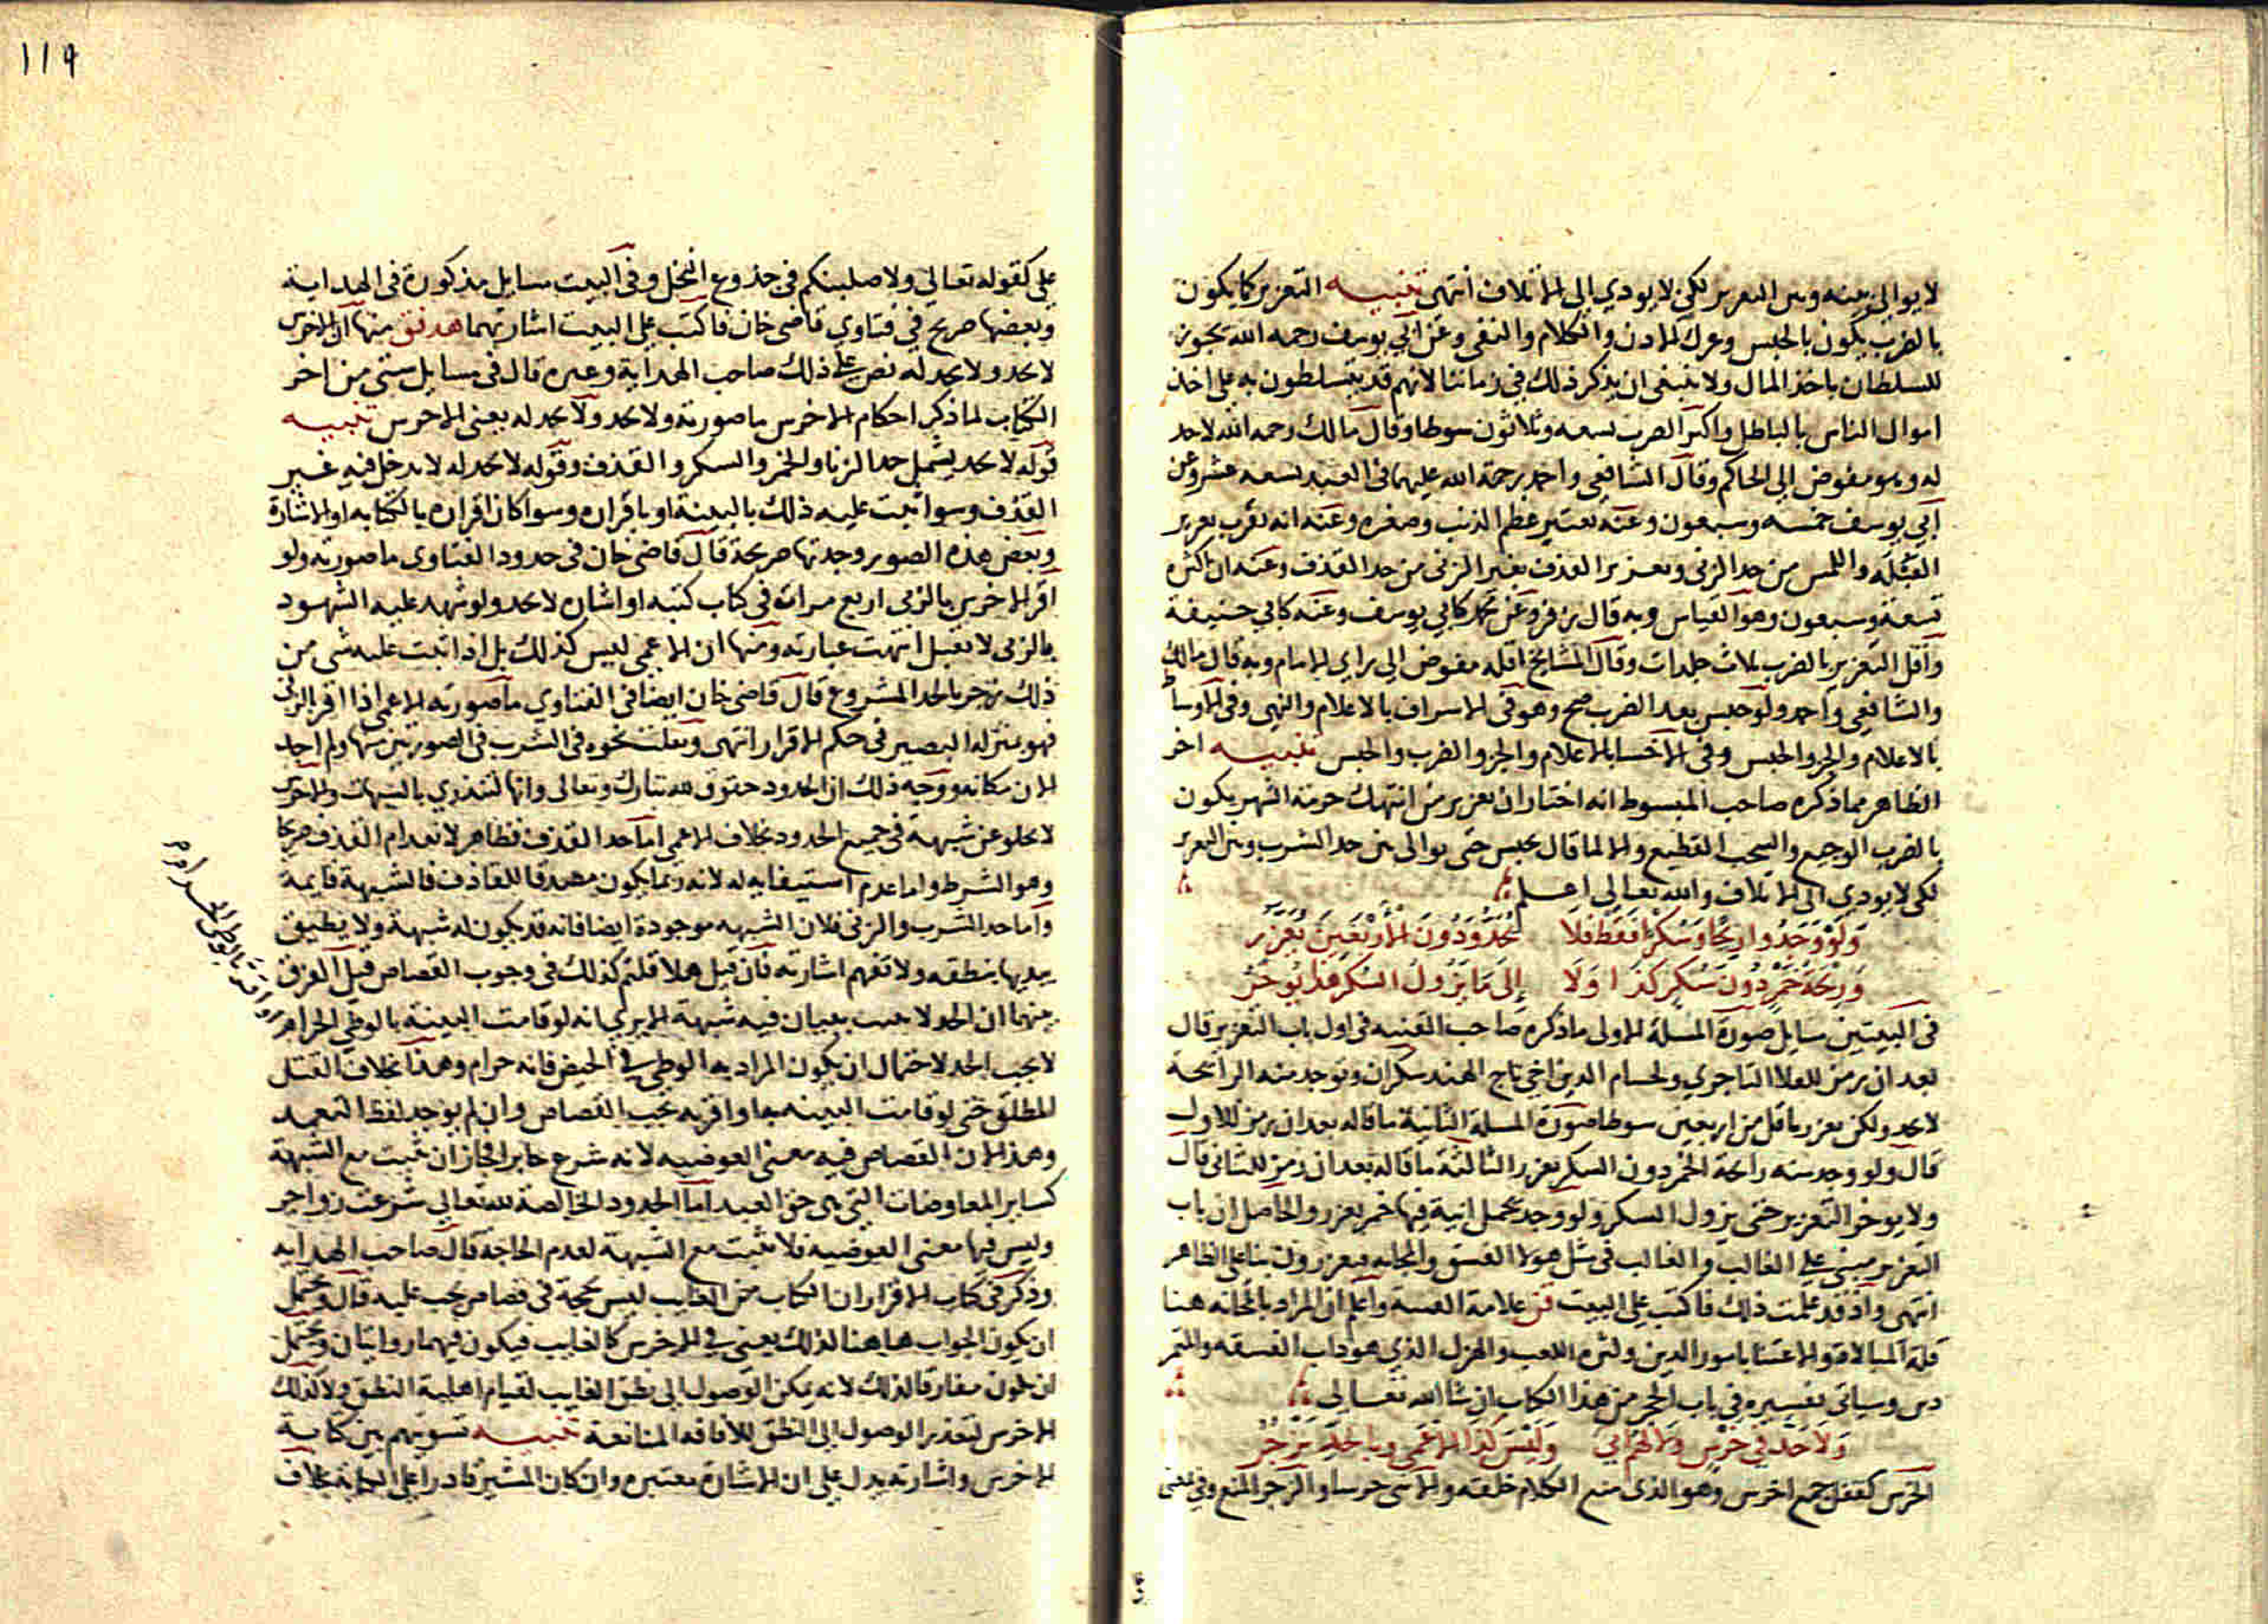 لا يوالي بينه وبين التعزير لكي لا يودي الى الاتلاف انتهى تنبيه التعزير كما يكون
بالضرب يكون بالحبس وعرك الاذن والكلام والنفي وعن ابي يوسف رحمه الله يجوز
للسلطان باخذ المال ولا ينبغي ان يذكر ذلك في زماننا لانهم قد يتسلطون به على اخذ
اموال الناس بالباطل واكثر الضرب تسعه وثلاثون سوطا وقال مالك رحمه الله لا حد
له وهو مفوض الى الحاكم وقال الشافعي واحمد رحمة الله عليهما في العبد تسعه عشر وعن
ابي يوسف خمسه وسبعون وعنه يعتبر عظم الذنب وصغره وعنه انه يقرب تعزير
القبلة واللمس من حد الزنى وتعزير القذف بغير الزنى من حد القذف وعنه ان اكثره
تسعة وسبعون وهو القياس وبه قال زفر وعن محمد كابي يوسف وعنه كابي حنيفة
واقل التعزير بالضرب ثلاث جلدات وقال المشايخ اقله مفوض الى راي الامام وبه قال مالك
والشافعي واحمد ولو حبس بعد الضرب صح وهو في الاسراف بالاعلام والنهي وفي الاوساط
بالاعلام والجر والحبس وفي الاخسا بالاعلام والجر والضرب والحبس تنبيه اخر
الظاهر مما ذكره صاحب المبسوط انه اختار ان تعزير من انتهك حرمة الشهر يكون
بالضرب الوجيع والسحب الفظيع والا لما قال يحبس حتى يوالى بين حد الشرب وبين التعزير
لكي لا يودي الى الاتلاف والله تعالى اعلم
وَلَوْ وَجَدُوا رِيحًا وَسُكْرًا فَقَطْ فَلَا يُحَدُّ وَدُونَ الْأَرْبَعِينَ يُعَزَّرُ
وَرِيحَةُ خَمْرٍ دُونَ سُكْرٍ كَذَا وَلَا إِلَى مَا يَزُولُ السُّكْرُ هَذَا يُوخَّرُ
في البيتين سايل صورة المسلة الاولى ما ذكره صاحب القنيه في اول باب التعزير قال
بعد ان رمز للعلا التاجري ولحسام الدين اخي تاج الهند سكران وتوجد منه الرايحة
لا يحد ولكن يعزر باقل من اربعين سوطا صورة المسلة الثانية ما قاله بعد ان رمز للاول
قال ولو وجد منه رايحة الخمر دون السكر يعزر الثالثة ما قاله بعد ان رمز للثاني قال
ولا يوخر التعزير حتى يزول السكر ولو وجد يحمل انية فيها خمر يعزر والحاصل ان باب
التعزير مبني على الغالب والغالب في مثل هولا الفسق والمجانه فيعزرون بنا على الظاهر
انتهى واذ قد علمت ذلك فاكتب على البيت قن علامة القنية واعلم ان المراد بالمجانه هنا
قلة المبالاة والاعتنا بامور الدين وكثره اللعب والهزل الذي هو داب الفسقه والتمر
دس وسياتي تفسيره في باب الحجر من هذا الكتاب ان شا الله تعالى
وَلَا حَدَّ فِي خُرْسٍ وَلَيْسَ كَذَا الْأَعْمَى وَبِالْحَدِّ يُزْجَرُ
الخرس كقفل جمع اخرس وهو الذي منع الكلام خلقه والزجر المنع وفي بمعنى
على كقوله تعالى ولاصلبنكم في جذوع النخل وفي البيت مسايل مذكورة في الهداية
وبعضها صريح في فتاوي قاضي خان فاكتب على البيت اشارتهما هد فق منها ان الاخرس
لا يحد ولا يحد له نص على ذلك صاحب الهداية وغيره قال في مسايل شتى من اخر
الكتاب لما ذكر احكام الاخرس ما صورته ولا يحد ولا يحد له يعني الاخرس تنبيه
قوله لا يحد يشمل حد الزنا والخمر والسكر والقذف وقوله لا يحد له لا يدخل فيه غير
القذف وسوا ثبت عليه ذلك بالبينة او باقراره وسوا كان اقراره بالكتابه او الاشارة
وبعض هذه الصور وجدتها صريحة قال قاضي خان في حدود الفتاوى ما صورته ولو
اقر الاخرس بالزنى اربع مرات في كتاب كتبه او اشاره لا يحد ولو شهد عليه الشهود
بالزنى لا تقبل انتهت عبارته ومنها ان الاعمى ليس كذلك بل اذا ثبت عليه شي من
ذلك يزجر بالحد المشروع قال قاضي خان ايضا في الفتاوي ما صورته الاعمى اذا اقر بالزنى
فهو بمنزلة البصير في حكم الاقرار انتهى ونقلت نحوه في الشرب في الصورتين ولم اجد
الان مكانه ووجه ذلك ان الحدود حقوق لله تبارك وتعالى وانها تندري بالشبهات والاخرس
لا يخلو عن شبهة في جميع الحدود بخلاف الاعمى اما حد القذف فظاهر لانعدام القذف صريحا
وهو الشرط واما عدم استيفايه له لانه ربما يكون مصدقا للقاذف فالشبهة قايمة
واما حد الشرب والزنى فلان الشبهه موجودة ايضا فانه قد يكون له شبهة ولا يطيق
يبديها بنطقه ولا تفهم اشارته فان قيل هلا قلتم كذلك في وجوب القصاص قيل الفرق
بينهما ان الحد لا يثبت ببيان فيه شبهة الا يرى انه لو قامت البينة بالوطي الحرام
لا يجب الحد لاحتمال ان يكون المراد به الوطي في الحيض فانه حرام وهذا بخلاف القتل
المطلق حتى لو قامت البينه بها او اقر به يجب القصاص وان لم يوجد لفظ التعمد
وهذا لان القصاص فيه معنى العوضيه لانه شرع جابرا فجاز ان يثبت مع الشبهة
كساير المعاوضات التي هي حق العبد اما الحدود الخالصة لله تعالى شرعت زواجر
وليس فيها معنى العوضيه فلا تثبت مع الشبهة لعدم الحاجة قال صاحب الهدايه
وذكر في كتاب الاقرار ان الكتاب من الغايب ليس بحجة في قصاص يجب عليه قال ويحتمل
ان يكون الجواب هاهنا كذلك يعني في الاخرس كالغايب فيكون فيهما روايتان ويحتمل
ان يكون مفارقا لذلك لانه يمكن الوصول الى نطق الغايب لقيام اهلية النطق ولا كذلك
الاخرس لتعذر الوصول الى النطق للافاقه المانعة تنبيه تسويتهم بين كتابة
الاخرس واشارته يدل على ان الاشارة معتبره وان كان المشير قادرا على الكتابة بخلاف